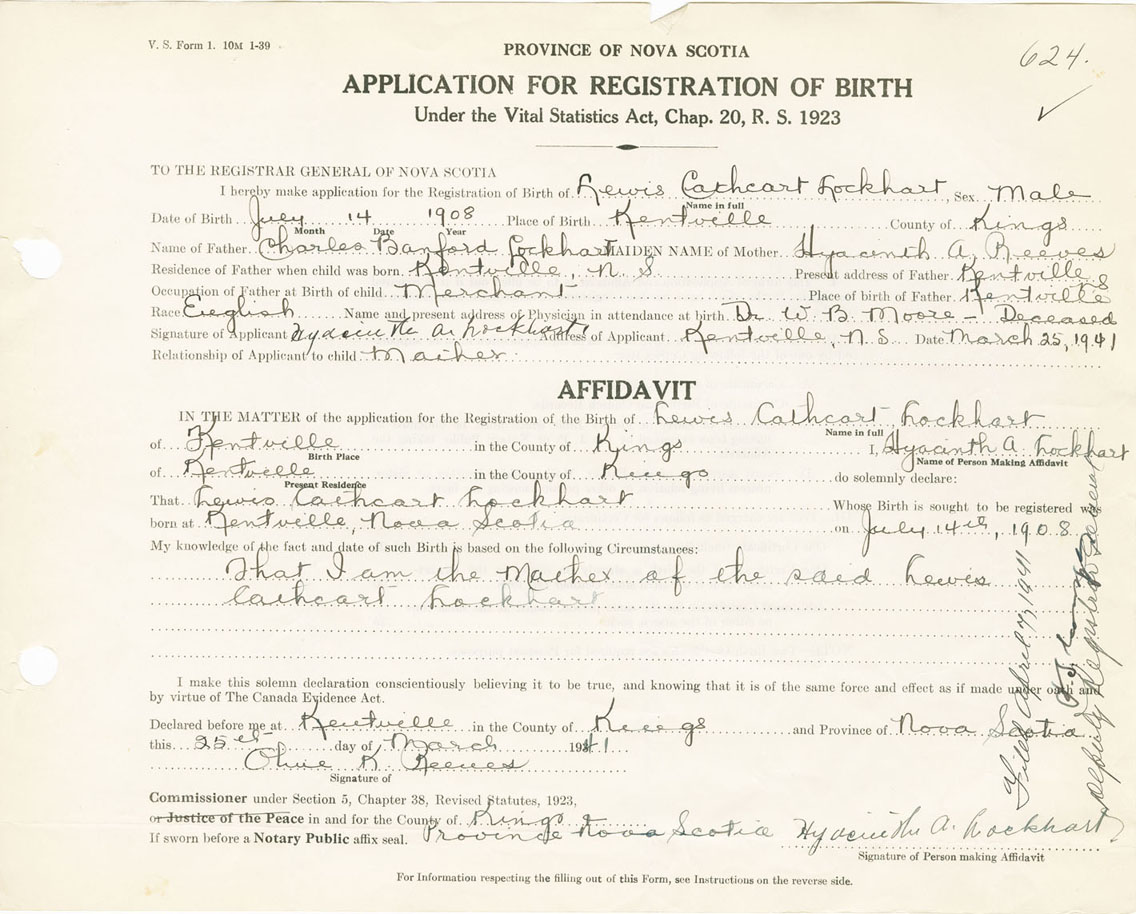 V. S. Form 1. 10M 1-39
624.
PROVINCE OF NOVA SCOTIA
APPLICATION FOR REGISTRATION OF BIRTH
Under the Vital Statistics Act, Chap. 20, R. S. 1923
TO THE REGISTRAR GENERAL OF NOVA SCOTIA
I hereby make application for the Registration of Birth of Lewis Cathcart Lockhart, Sex Male
Name in full
Date of Birth July 14 1908 Place of Birth Kentville County of Kings
Month Date Year
Name of Father Charles Banford Lockhart MAIDEN NAME of Mother Hyacinth A. Reeves
Residence of Father when child was born Kentville, N. S. Present address of Father Kentville N S
Occupation of Father at Birth of child Merchant Place of birth of Father Kentville
Race English Name and present address of Physician in attendance at birth Dr W. B. Moore - Deceased
Signature of Applicant Hyacinthe A. Lockhart Address of Applicant Kentville, N. S. Date March 25, 1941
Relationship of Applicant to child Mother
AFFIDAVIT
IN THE MATTER of the application for the Registration of the Birth of Lewis Cathcart Lockhart
Name in full
of Kentville in the County of Kings I, Hyacinth A Lockhart
Birth Place Name of Person Making Affidavit
of Kentville in the County of Kings do solemnly declare:
Present Residence
That Lewis Cathcart Lockhart Whose Birth is sought to be registered was
born at Kentville, Nova Scotia on July 14th, 1908
My knowledge of the fact and date of such Birth is based on the following Circumstances:
That I am the Mother of the said Lewis
Cathcart Lockhart
I make this solemn declaration conscientiously believing it to be true, and knowing that it is of the same force and effect as if made under oath and
by virtue of The Canada Evidence Act.
Declared before me at Kentville in the County of Kings and Province of Nova Scotia
this 25th day of March 1941
Olive K. Reeves
Signature of
Commissioner under Section 5, Chapter 38, Revised Statutes, 1923,
or Justice of the Peace in and for the County of Kings &
If sworn before a Notary Public affix seal. Province Nova Scotia Hyacinthe A. Lockhart
Signature of Person making Affidavit
For Information respecting the filling out of this Form, see Instructions on the reverse side.
Filed April 7, 1941
Deputy Registrar General